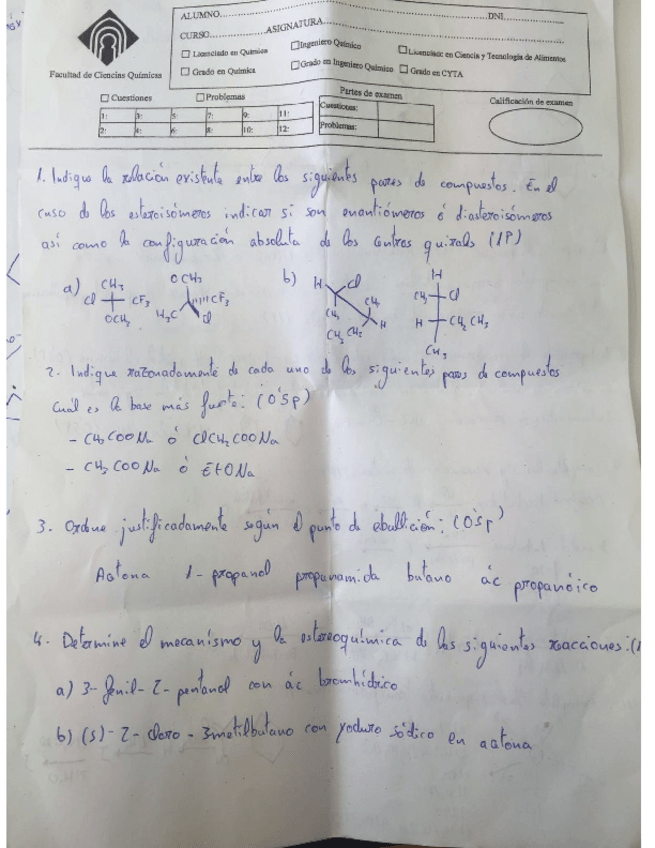 ALUMNO DNI
CURSO ASIGNATURA
Licenciado en Química Ingeniero Químico Licenciado en Ciencia y Tecnología de Alimentos
Grado en Química Grado en Ingeniero Químico Grado en CYTA
Facultad de Ciencias Químicas
Cuestiones Problemas Partes de examen Calificación de examen
1: 3: 5: 7: 9: 11: Cuestiones:
2: 4: 6: 8: 10: 12: Problemas:
1. Indique la relación existente entre los siguientes pares de compuestos. En el
caso de los estereoisómeros indicar si son enantiómeros ó diasteroisómeros
así como la configuración absoluta de los centros quirales (1P)
a) CH3 Cl CF3 OCH3 OCH3 H3C CF3 Cl b) H Cl CH3 CH3 CH3 CH2 H H CH3 Cl H CH2CH3 CH3
2. Indique razonadamente de cada uno de los siguientes pares de compuestos
cuál es la base más fuerte: (0'5p)
- CH3COONa ó ClCH2COONa
- CH3COONa ó EtONa
3. Ordene justificadamente según el punto de ebullición: (0'5p)
Acetona 1-propanol propanamida butano ác propanóico
4. Determine el mecanísmo y la estereoquímica de las siguientes reacciones:(1
a) 3-fenil-2-pentanol con ác bromhídrico
b) (S)-2-cloro-3metilbutano con yoduro sódico en acetona